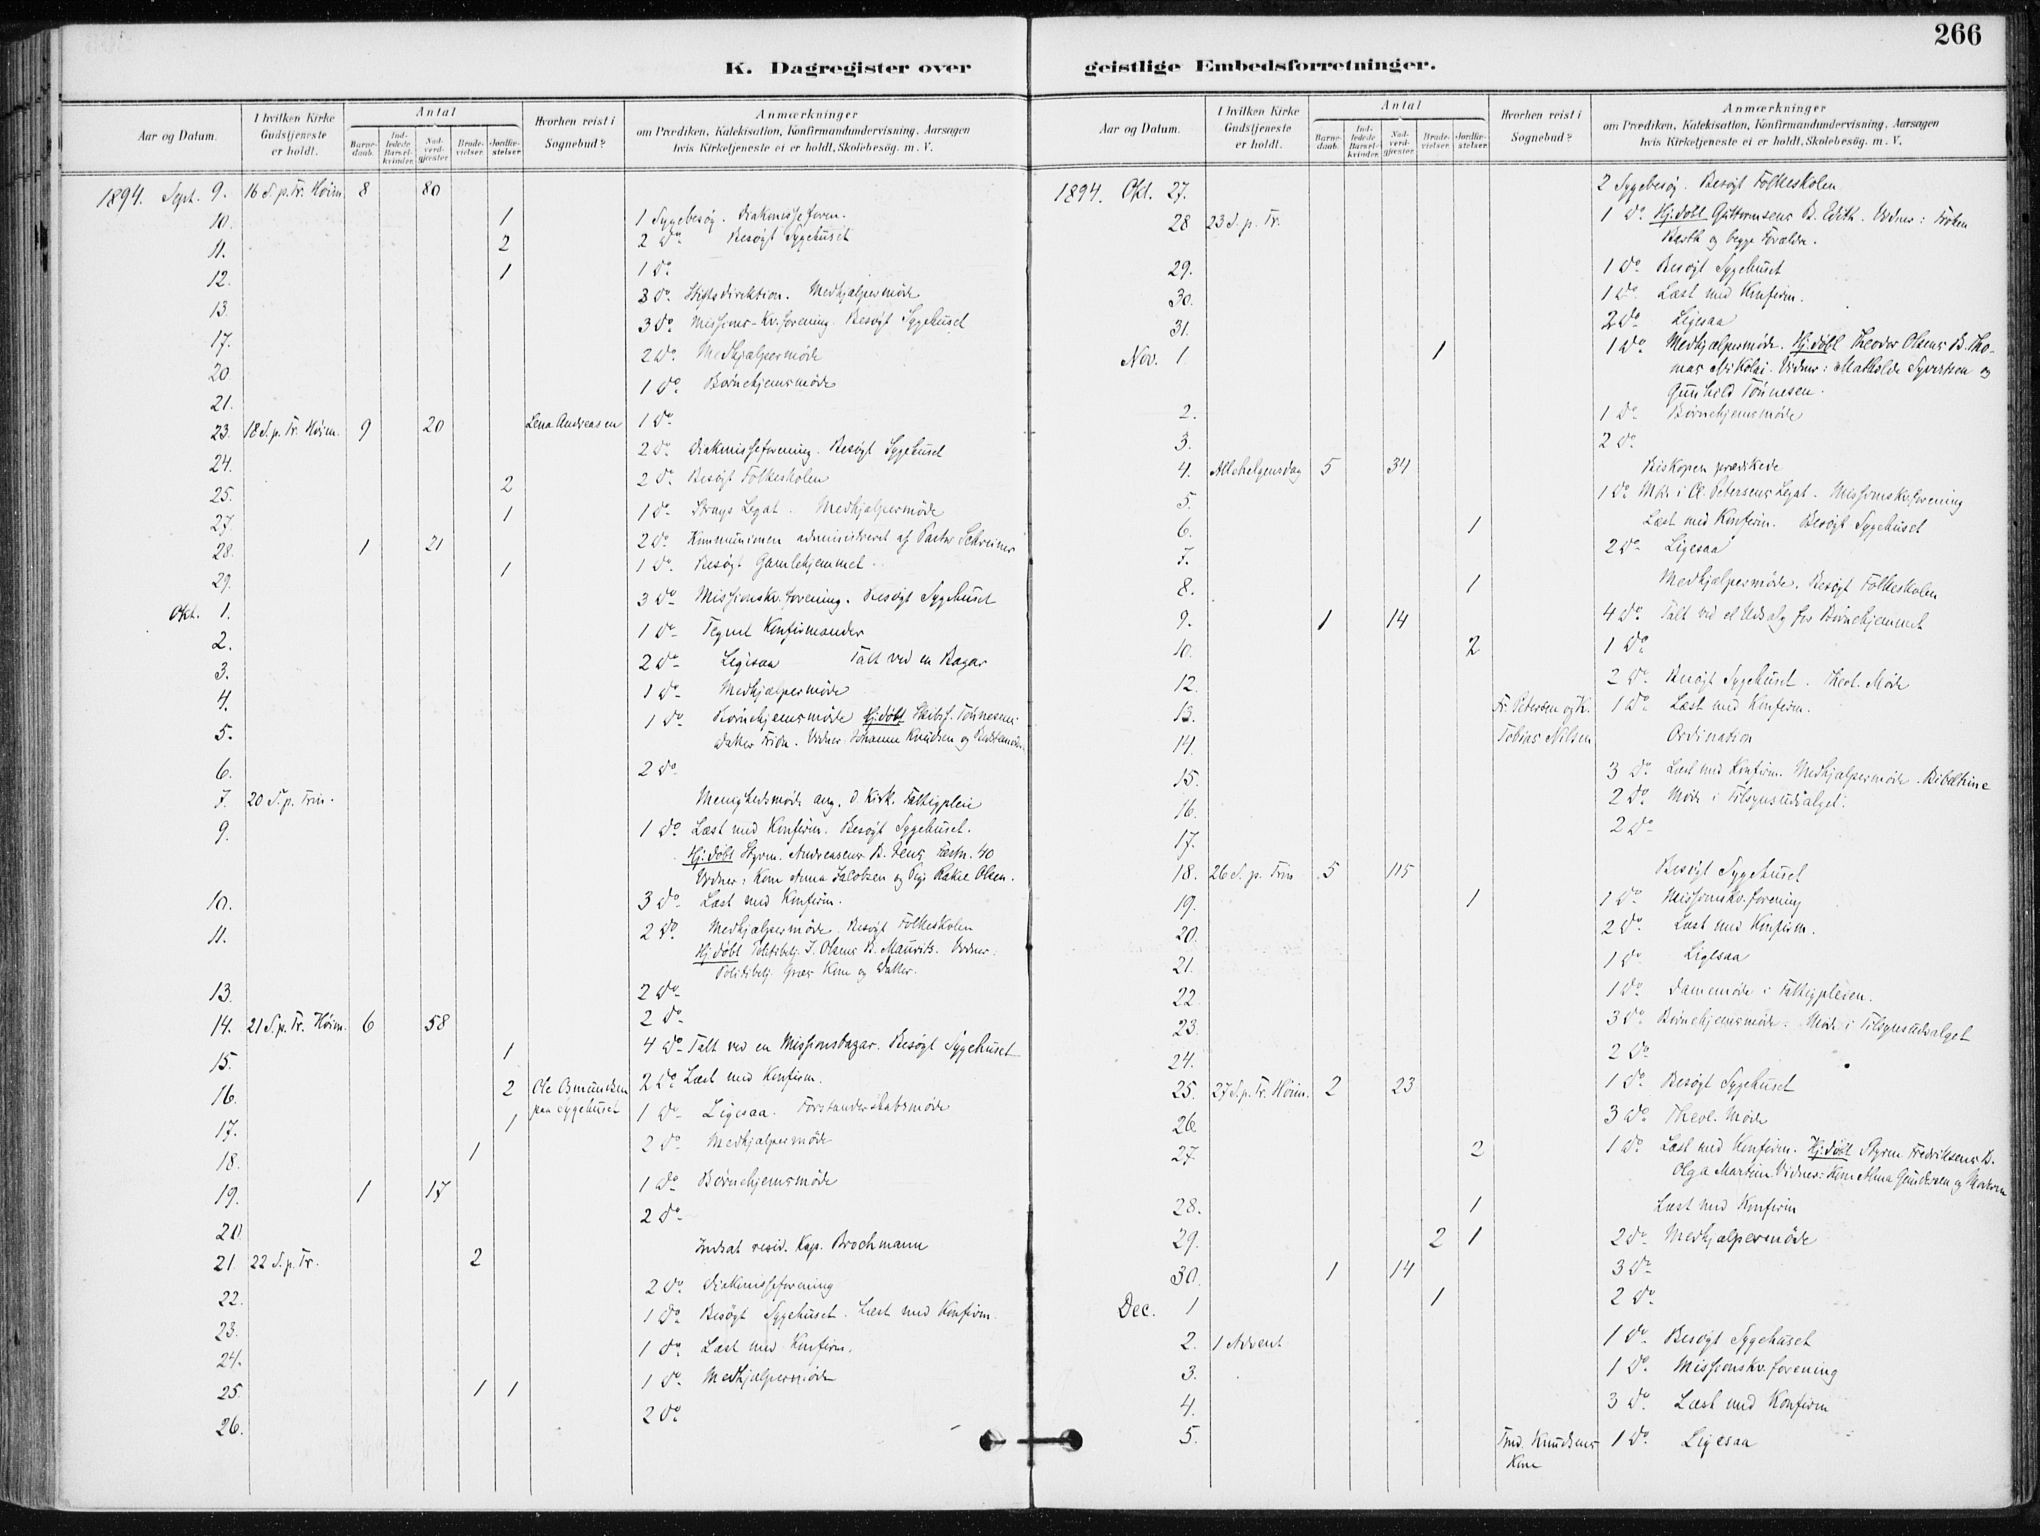 266
K. Dagregister over geistlige Embedsforretninger.
Aar og Datum.
I hvilken Kirke Gudstjeneste er holdt.
Antal
Barnedaab.
Indledede Barselkvinder.
Nadverdgjester.
Brudevielser.
Jordfæstelser.
Hvorhen reist i Sognebud?
Anmærkninger
om Prædiken, Katekisation, Konfirmandundervisning, Aarsagen hvis Kirketjeneste ei er holdt, Skolebesøg. m. V.
1894. Sept. 9. 16 S. p. Tr. Høim. 8 80
10. 1 1 Sygebesøg. Diakonisseforen.
11. 2 2 Do Besøgt Sygehuset
12. 1 1 Do
13. 3 Do Stiftsdirektion. Medhjælpermøde
17. 3 Do Missions-Kv.forening. Besøgt Sygehuset
20 2 Do Medhjælpermøde
21. 1 Do Børnehjemsmøde
23. 18 S. p. Tr. Høim. 9 20 Lena Andreasen 1 Do
24. 2 Do Diakonisseforening. Besøgt Sygehuset
25. 2 2 Do Besøgt Folkeskolen
27. 1 1 Do Strays Legat. Medhjælpermøde
28. 1 21 2 Do Kommunionen administreret af Pastor Schreiner
29. 1 1 Do Besøgt Gamlehjemmet.
Okt. 1. 3 Do Missionskv.forening. Besøgt Sygehuset
2. 1 Do Tegnet Konfirmander
3. 2 Do Ligesaa Talt ved en Bazar
4. 1 Do Medhjælpermøde
5. 1 Do Børnehjemsmøde Hj.døbt Skibsf. Tønnesens
Datter . Vidner. Johanne Knudsen og
6. 2 Do
7. 20 S. p. Trin. Menighedsmøde ang. d. kirk. Fattigpleie
9. 1 Do Læst med Konfirm. Besøgt Sygehuset.
Hj.døbt Styrm. Andreasens B. Jens 40
Vidner: Kone Anna Jacobsen og Pige Rakel Olsen.
10. 3 Do Læst med Konfirm.
11. 2 Do Medhjælpermøde. Besøgt Folkeskolen
Hj.døbt Politibetj. J. Olsens B. Maurits. Vidner:
Politibetj. Græs Kone og Datter.
13. 2 Do
14. 21 S. p. Tr. Høim. 6 58 2 Do
15. 1 4 Do Talt ved en Missionsbazar. Besøgt Sygehuset
16. 2 Ole Osmundsen paa Sygehuset 2 Do Læst med Konfirm.
17. 1 1 Do Ligesaa. Forstanderskabsmøde
18. 1 2 Do Medhjælpermøde
19. 1 17 1 Do Børnehjemsmøde
20 2 Do
21. 22 S. p. Tr. 2 Indsat resid. Kap. Brochmann
22. 2 Do Diakonisseforening
23. 1 Do Besøgt Sygehuset. Læst med Konfirm.
24. 1 Do Læst med Konfirm.
25. 1 1 1 Do Medhjælpermøde
26. 2 Do
Aar og Datum.
I hvilken Kirke Gudstjeneste er holdt.
Antal
Barnedaab.
Indledede Barselkvinder.
Nadverdgjester.
Brudevielser.
Jordfæstelser.
Hvorhen reist i Sognebud?
Anmærkninger
om Prædiken, Katekisation, Konfirmandundervisning, Aarsagen hvis Kirketjeneste ei er holdt, Skolebesøg. m. V.
1894. Okt. 27. 2 Sygebesøg. Besøgt Folkeskolen
28 23 S. p. Tr. 1 Do Hj.døbt Guttormsens B. Edith. Vidner: Frøken
Barth og begge Forældre.
29. 1 Do Besøgt Sygehuset
30. 1 Do Læst med Konfirm.
31. 2 Do Ligesaa
Nov. 1 1 1 Do Medhjælpermøde. Hj.døbt Theodor Olsens B. Tho-
mas Nikolai. Vidner: Mathilde Syvertsen og
Gunhild Tønnesen.
2. 1 Do Børnehjemsmøde
3. 2 Do
4. Allehelgensdag 5 34 Biskopen prædikede
5. 1 Do Møde i Cl. Petersens Legat. Missionskv.forening
6. 1 Læst med Konfirm. Besøgt Sygehuset
7. 2 Do Ligesaa
8. 1 Medhjælpermøde. Besøgt Folkeskolen
9. 1 14 4 Do Talt ved et Udsalg for Børnehjemmet
10. 2 1 Do
12. 2 Do Besøgt Sygehuset. Theol. Møde
13. Fr. Petersen og K. 1 Do Læst med Konfirm.
14. Tobias Nilsen Ordination
15. 3 Do Læst med Konfirm. Medhjælpermøde. Bibeltime
16. 2 Do Møde i Tilsynsudvalget.
17. 2 Do
18. 26 S. p. Trin 5 115 Besøgt Sygehuset
19. 1 1 Do Missionskv.forening
20. 2 Do Læst med Konfirm.
21. 1 Do Ligesaa
22. 1 Do Damemøde i Fattigpleien.
23. 3 Do Børnehjemsmøde. Møde i Tilsynsudvalget
24. 2 Do
25. 27 S. p. Tr. Høim. 2 23 1 Do Besøgt Sygehuset
26 3 Do Theol. Møde
27. 2 1 Do Læst med Konfirm. Hj.døbt Styrm Fredriksens B.
Olga Martine. Vidner: Kone Alma Gundersen og Moderen
28. 1 Læst med Konfirm
29. 2 1 2 Do Medhjælpermøde
30. 1 14 3 Do
Dec. 1 1 2 Do
2. 1 Advent 1 Do Besøgt Sygehuset
3. 1 Do Missionskv.forening
4. 3 Do Læst med Konfirm
5. Knudsens Kone 1 Do Ligesaa